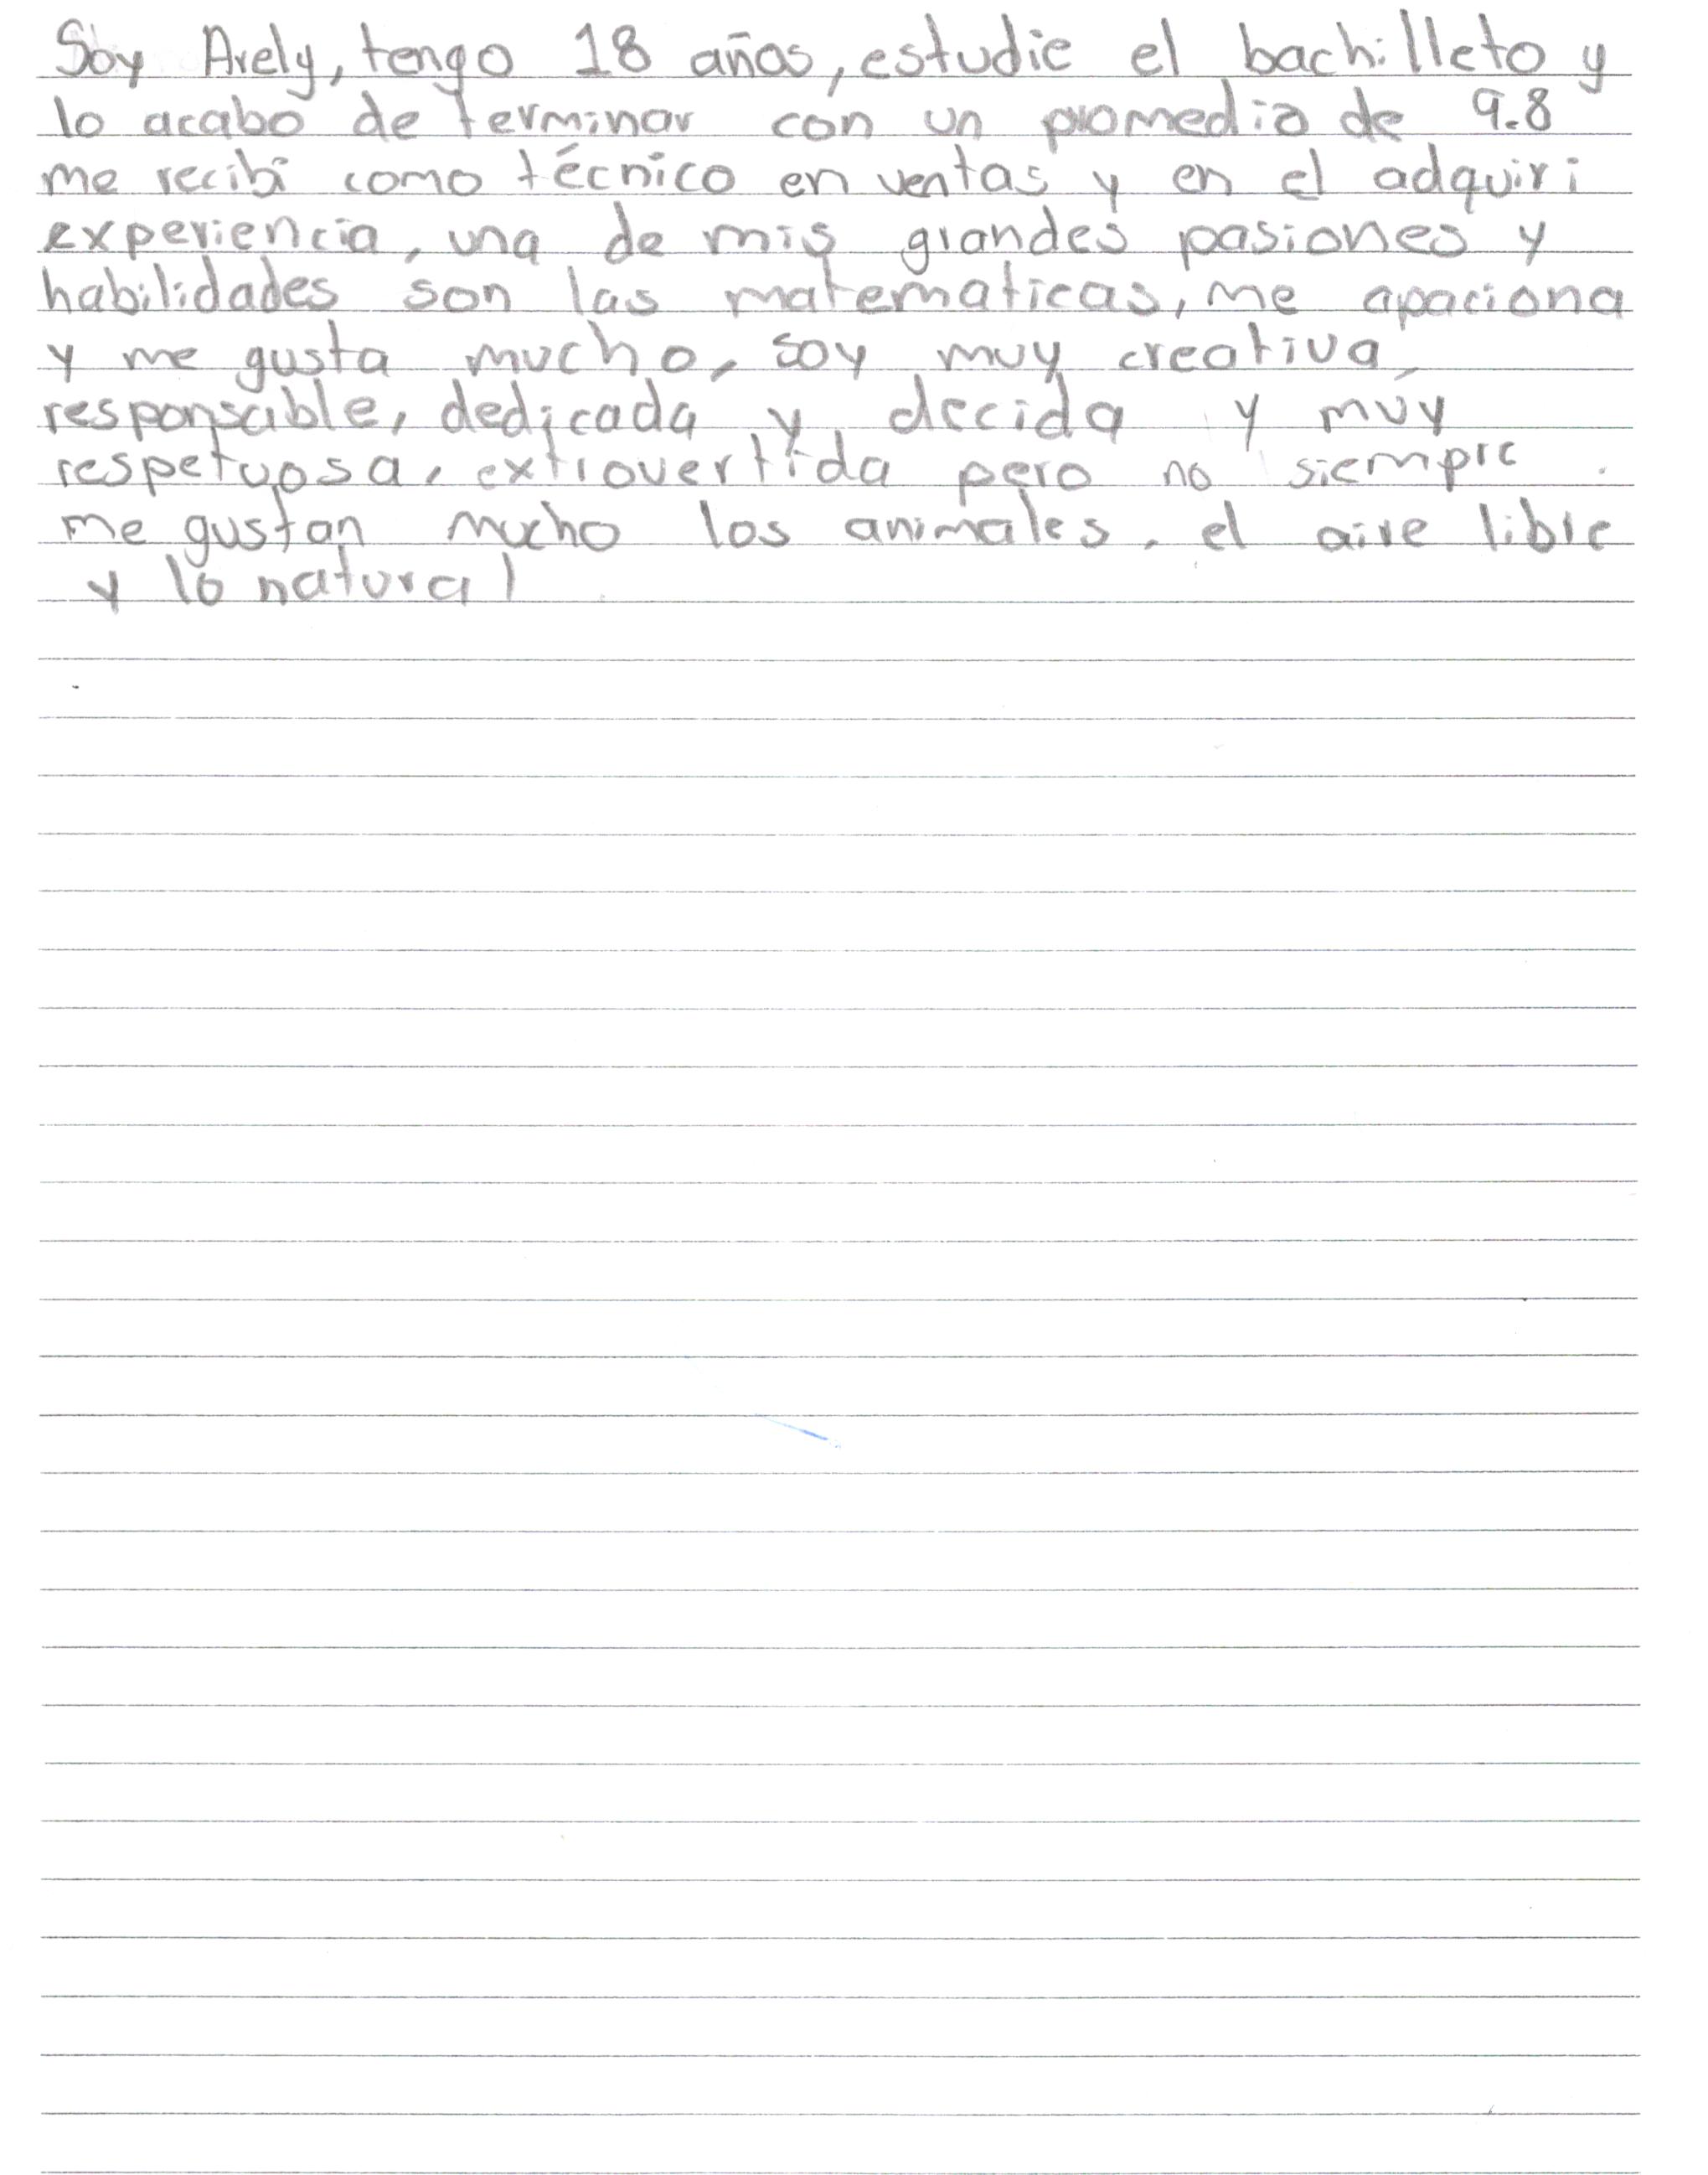 Soy Arely, tengo 18 años, estudie el bachilleto y
lo acabo de terminar con un promedio de 9.8
me recibí como técnico en ventas y en el adquiri
experiencia, una de mis grandes pasiones y
habilidades son las matematicas, me apaciona
y me gusta mucho, soy muy creativa,
responsable, dedicada y decida y muy
respetuosa, extrovertida pero no siempre.
me gustan mucho los animales, el aire libre
y lo natural